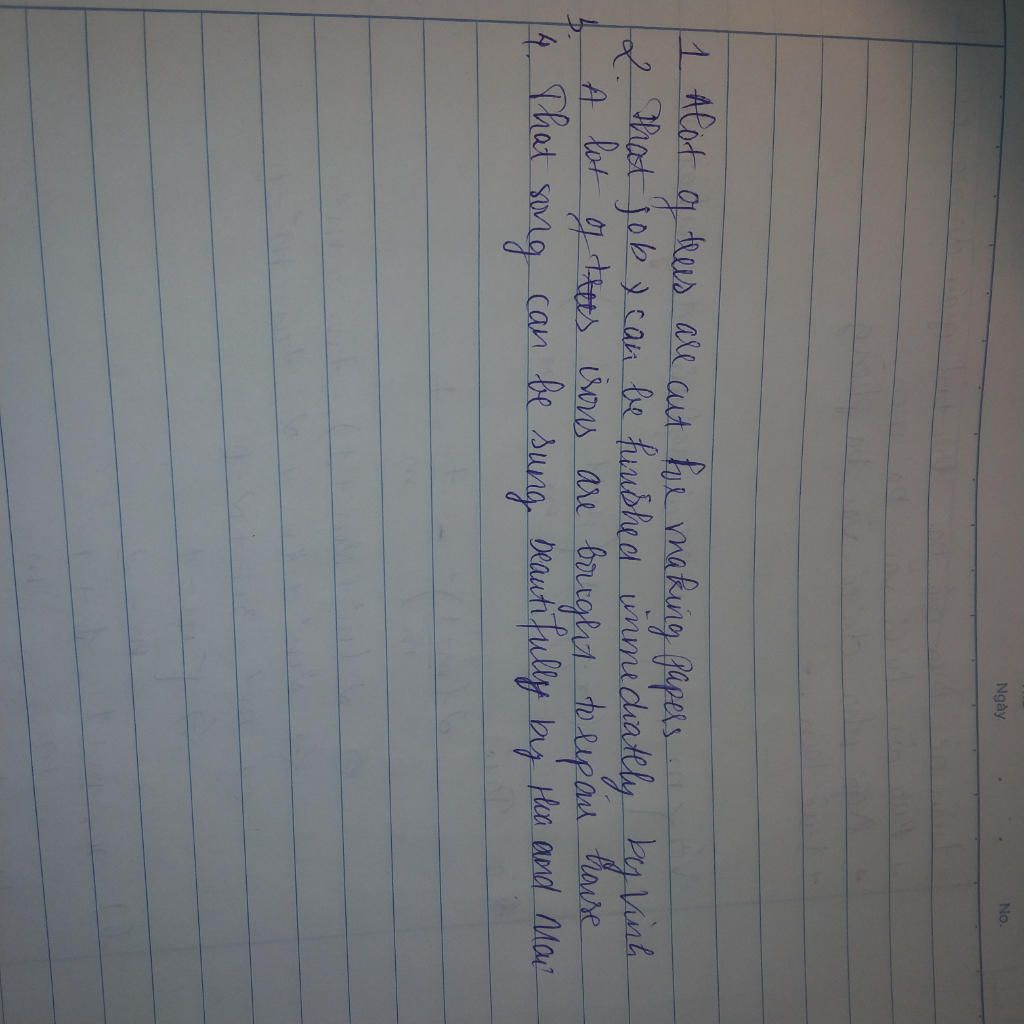 Ngày
No.
1 Alot of trees are cut for making papers
2. That job can be finished immediately by Vinh
3. A lot of trees irons are bought to repair house
4. That song can be sung beautifully by Hoa and Mai